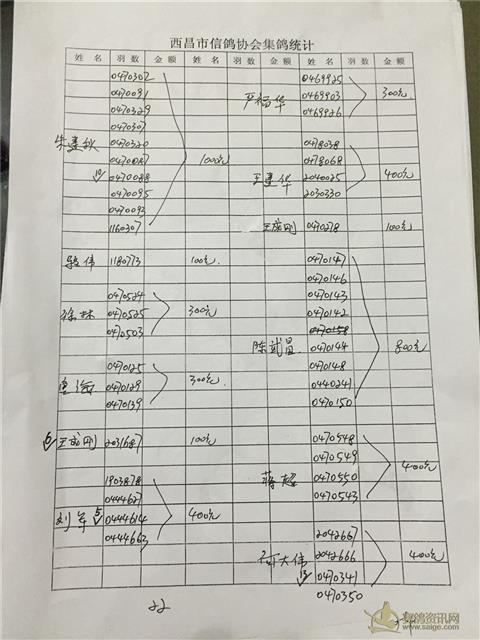 西昌市信鸽协会集鸽统计
姓 名 羽 数 金 额 姓 名 羽 数 金 额
0470302
0470091
0470329
0470307
0470320
0470088
0470095
0470092
1160307
1000元
骆伟 1180773 100元
徐林
0470524
0470525
0470503
300元
0470125
0470129
0470139
300元
王成刚 2031687 100元
刘军
1903878
0444627
0444614
0444663
400元
22
严福华
0469925
0469903
0469926
300元
王建华
0478038
0478068
2040025
2030330
400元
王成刚 0470278 100元
陈武昌
0470147
0470146
0470143
0470142
0470158
0470144
0470148
0440241
0470150
800元
蒋超
0470548
0470549
0470550
0470543
400元
何大伟
2042667
2042666
0470341
0470350
400元
赛鸽资讯网
www.saige.com